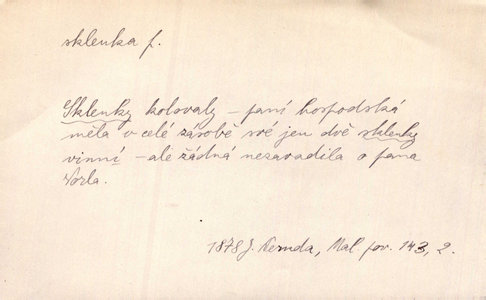 sklenka f.
Sklenky kolovaly – paní hospodská
měla v celé zásobě své jen dvě sklenky
vinní – ale žádná nezavadila o pana
Vorla.
1878 J. Neruda, Mal. pov. 143, 2.